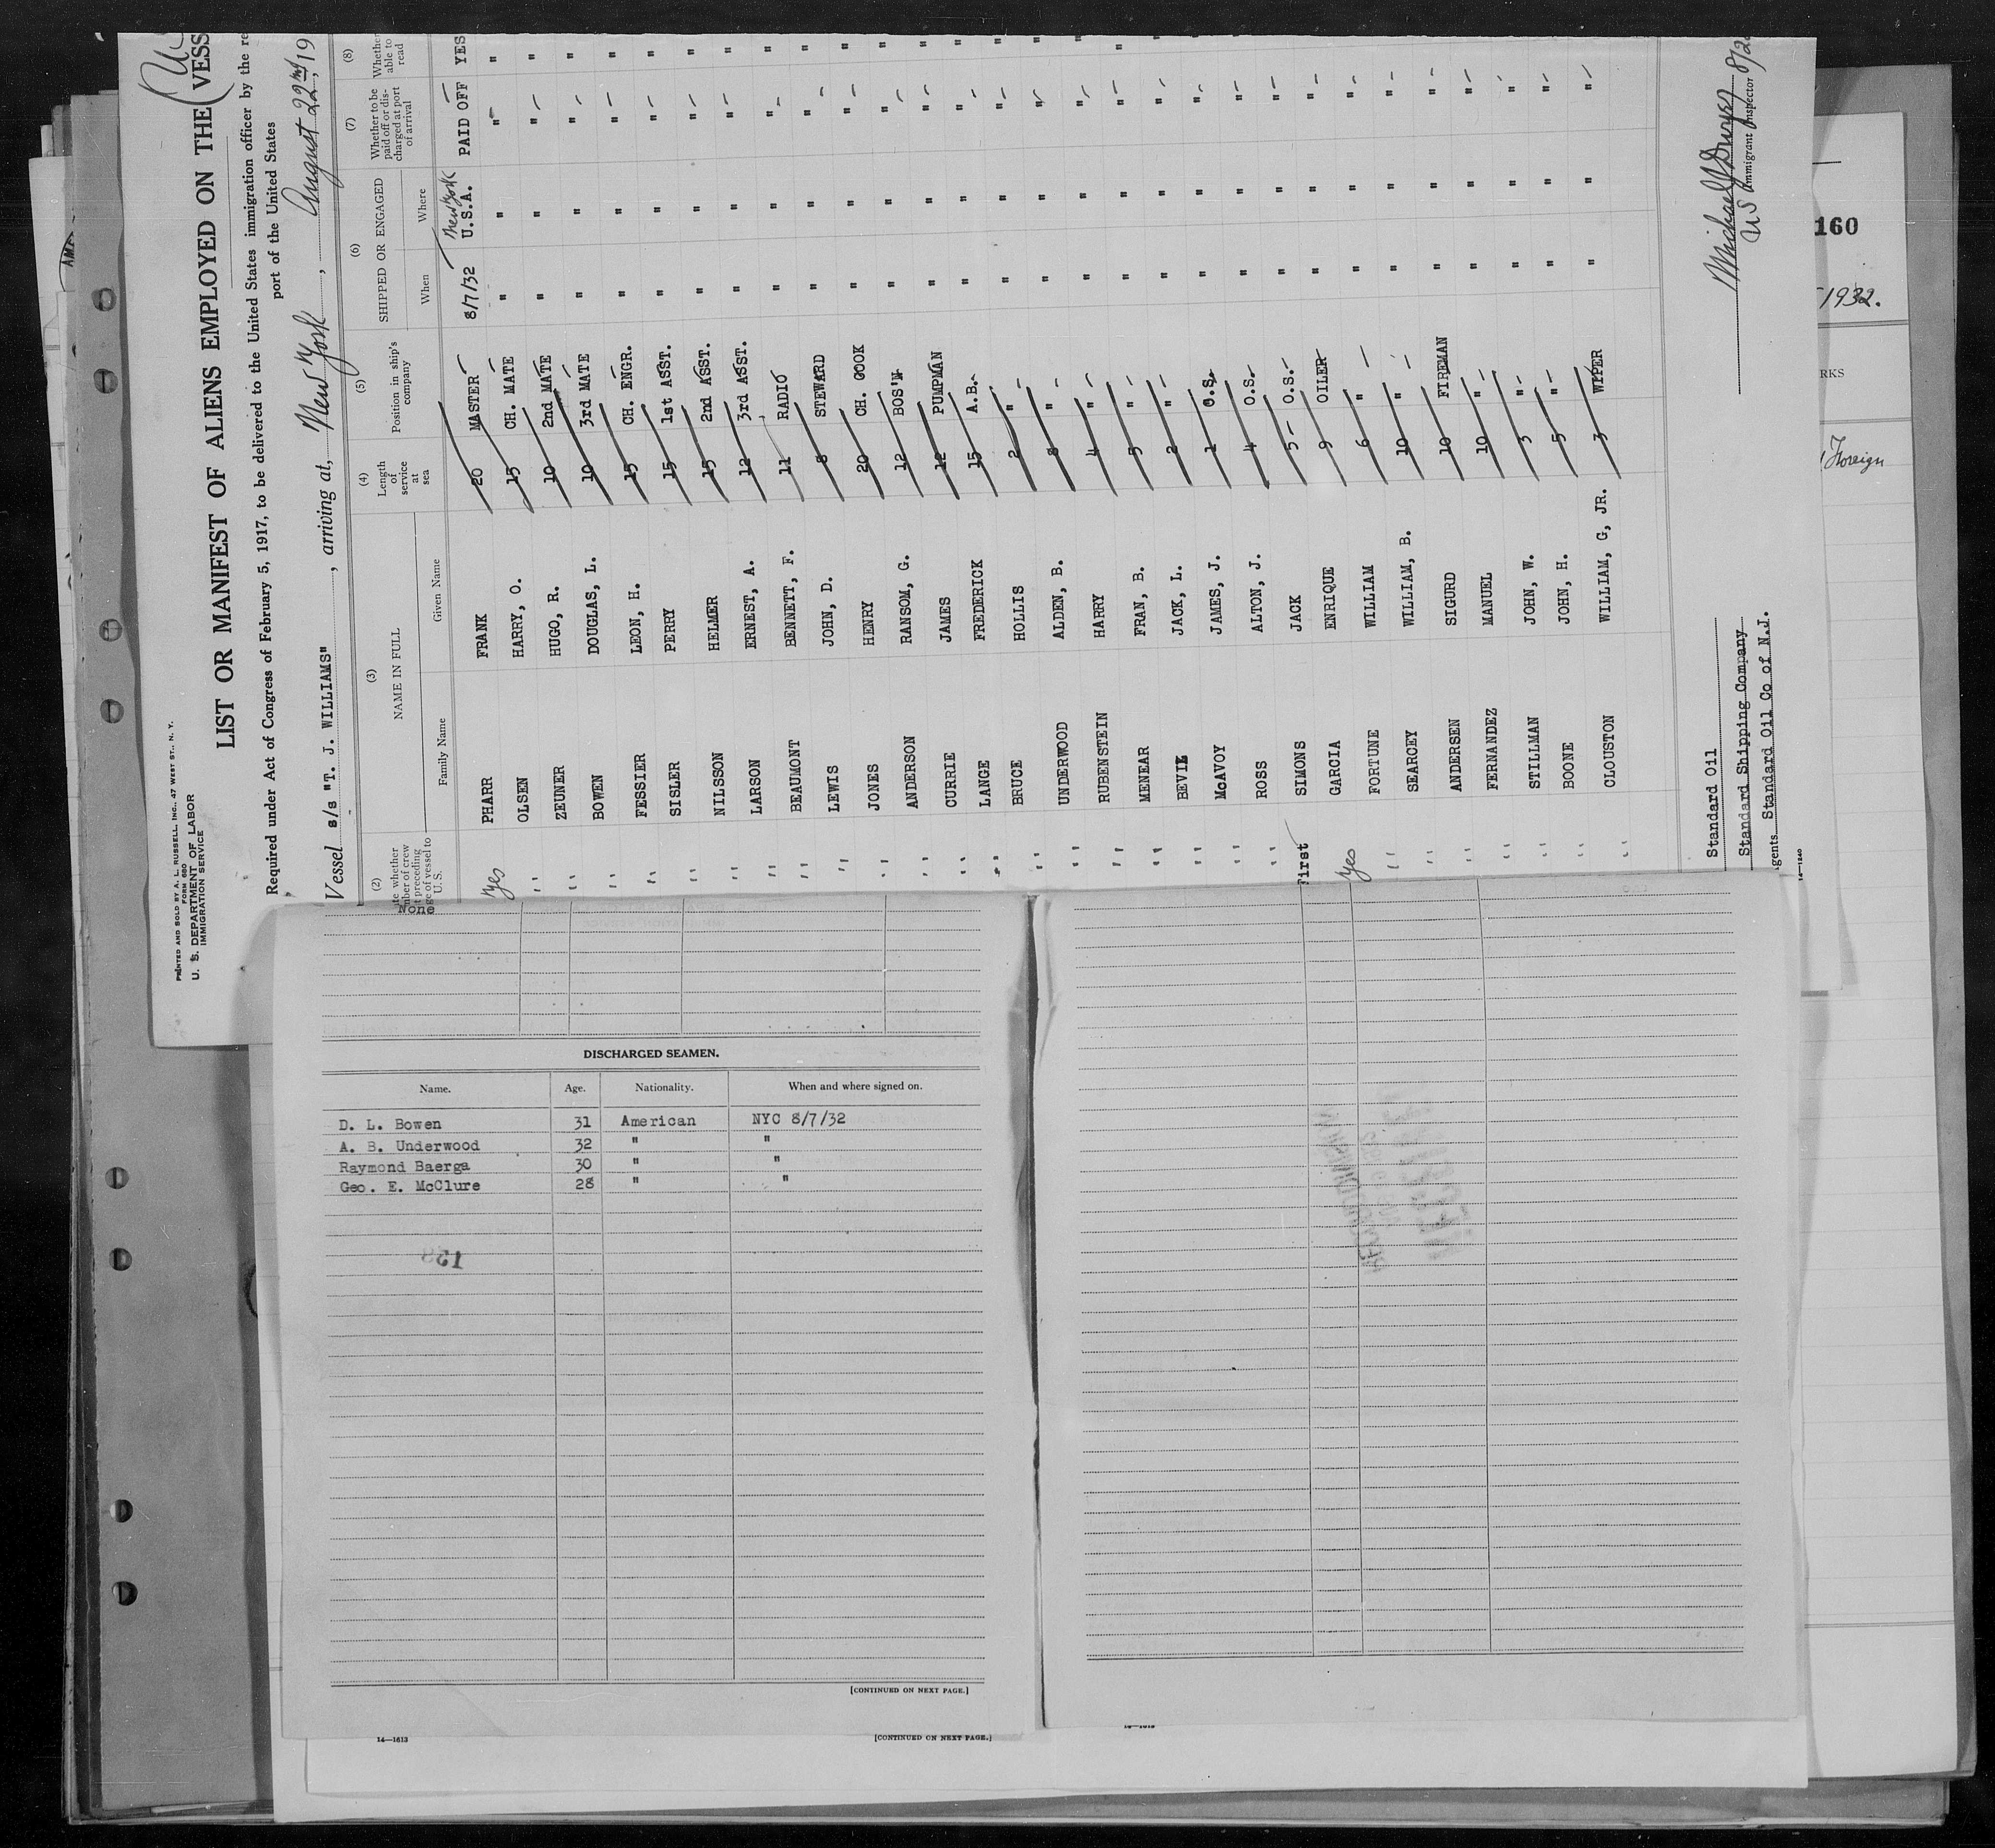 PRINTED AND SOLD BY A. L. RUSSELL, INC., 47 WEST ST., N. Y.
FORM 680
U. S. DEPARTMENT OF LABOR
IMMIGRATION SERVICE
LIST OR MANIFEST OF ALIENS EMPLOYED ON THE VESS
Required under Act of Congress of February 5, 1917, to be delivered to the United States immigration officer by the re
port of the United States
Vessel s/s "T. J. WILLIAMS", arriving at, New York, August 22nd, 19
(2) (3) (4) (5) (6) (7) (8)
te whether
mber of crew
t preceding
ge of vessel to
U. S.
NAME IN FULL
Family Name Given Name
Length of service at sea
Position in ship's company
SHIPPED OR ENGAGED
When Where
Whether to be paid off or discharged at port of arrival
Whether able to read
Yes PHARR FRANK 20 MASTER 8/7/32 New York U.S.A. PAID OFF YES
" OLSEN HARRY, O. 15 CH. MATE " " " "
" ZEUNER HUGO, R. 10 2nd MATE " " " "
" BOWEN DOUGLAS, L. 10 3rd MATE " " " "
" FESSIER LEON, H. 15 CH. ENGR. " " " "
" SISLER PERRY 15 1st ASST. " " " "
" NILSSON HELMER 15 2nd ASST. " " " "
" LARSON ERNEST, A. 12 3rd ASST. " " " "
" BEAUMONT BENNETT, F. 11 RADIO " " " "
" LEWIS JOHN, D. 8 STEWARD " " " "
" JONES HENRY 20 CH. COOK " " " "
" ANDERSON RANSOM, G. 12 BOS'N " " " "
" CURRIE JAMES 12 PUMPMAN " " " "
" LANGE FREDERICK 15 A.B. " " " "
" BRUCE HOLLIS 2 " " " " "
" UNDERWOOD ALDEN, B. 8 " " " " "
" RUBENSTEIN HARRY 4 " " " " "
" MENEAR FRAN, B. 5 " " " " "
" BEVIL JACK, L. 2 " " " " "
" McAVOY JAMES, J. 1 O.S. " " "
" ROSS ALTON, J. 4 O.S. " " "
First SIMONS JACK 5 O.S. " " "
Yes GARCIA ENRIQUE 9 OILER " " "
" FORTUNE WILLIAM 6 " " " "
" SEARCEY WILLIAM, B. 10 " " " "
" ANDERSEN SIGURD 10 FIREMAN " " "
" FERNANDEZ MANUEL 10 " " " "
" STILLMAN JOHN, W. 3 " " " "
" BOONE JOHN, H. 5 " " " "
" CLOUSTON WILLIAM, G, JR. 3 WIPER " " "
Standard Oil
Standard Shipping Company
Agents Standard Oil Co of N.J.
14—1240
US Immigrant Inspector
160
1932.
RKS
Foreign
None
DISCHARGED SEAMEN.
Name. Age. Nationality. When and where signed on.
D. L. Bowen 31 American NYC 8/7/32
A. B. Underwood 32 " "
Raymond Baerga 30 " "
Geo. E. McClure 28 " "
[CONTINUED ON NEXT PAGE.]
14—1613
[CONTINUED ON NEXT PAGE.]